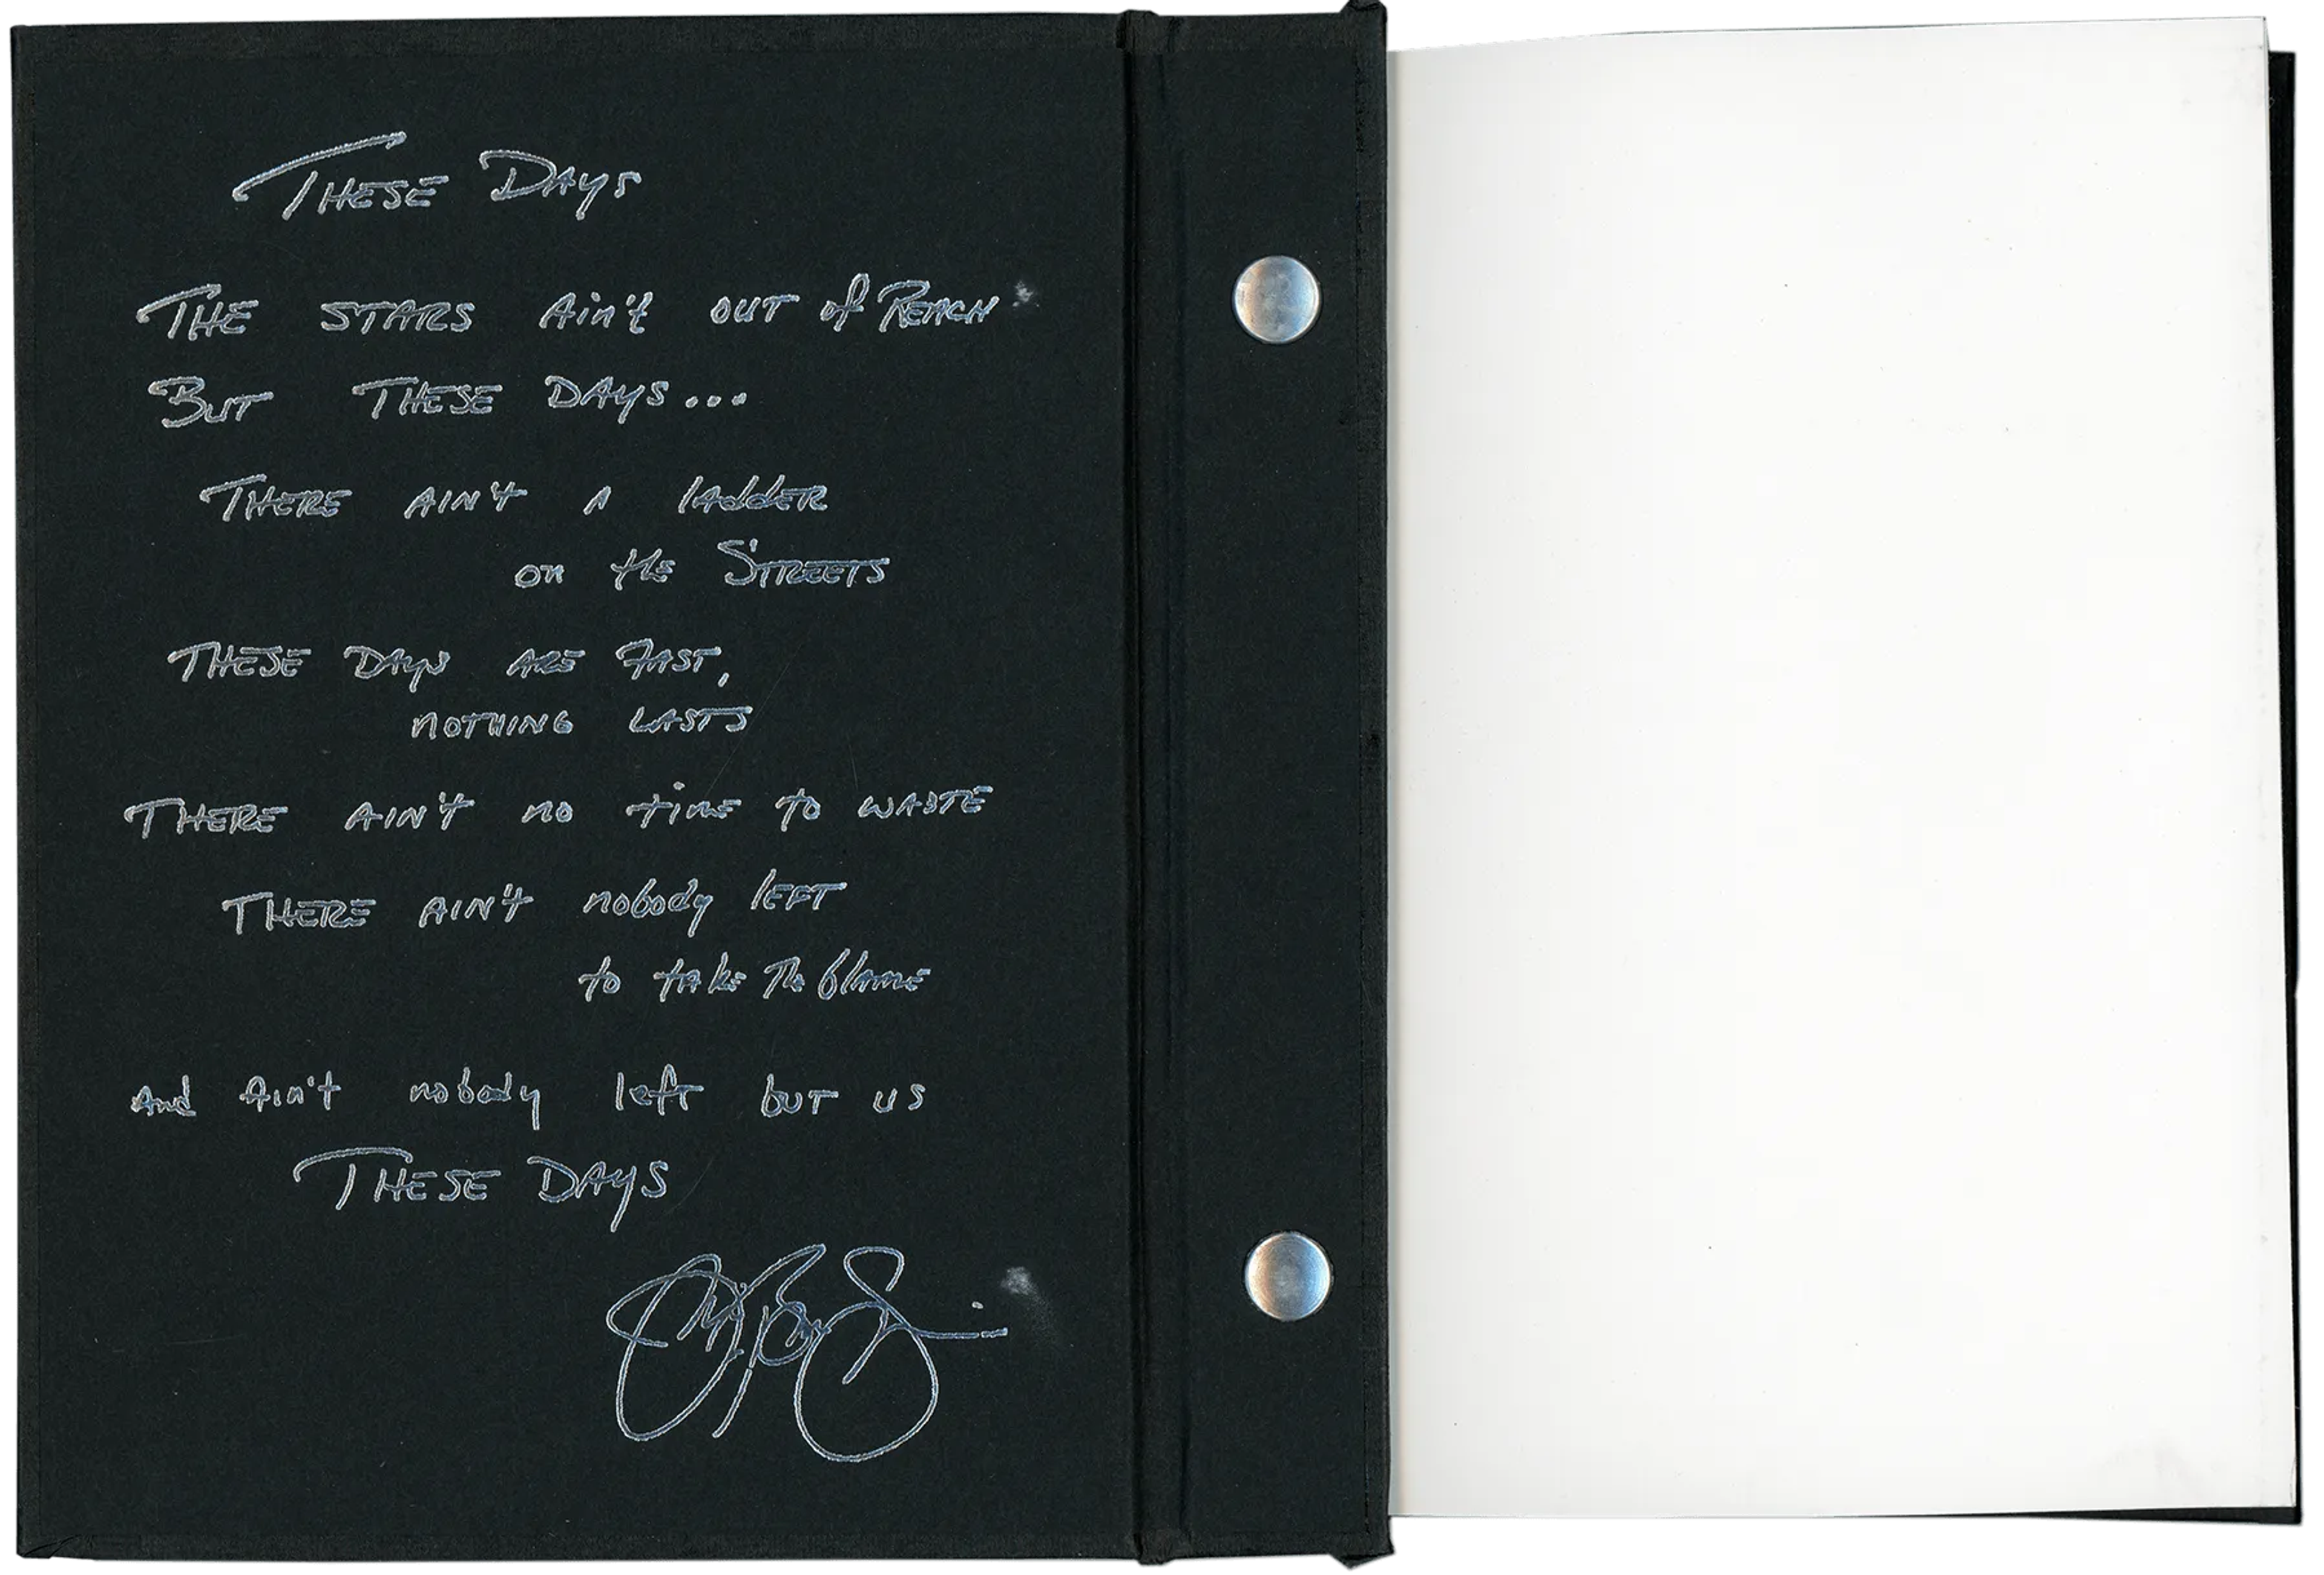 These Days
The stars Ain't out of Reach
But These Days...
There ain't a ladder
on the Streets
These Days are Fast,
nothing lasts
There ain't no time to waste
There ain't nobody left
to take The blame
And Ain't nobody left but us
These Days